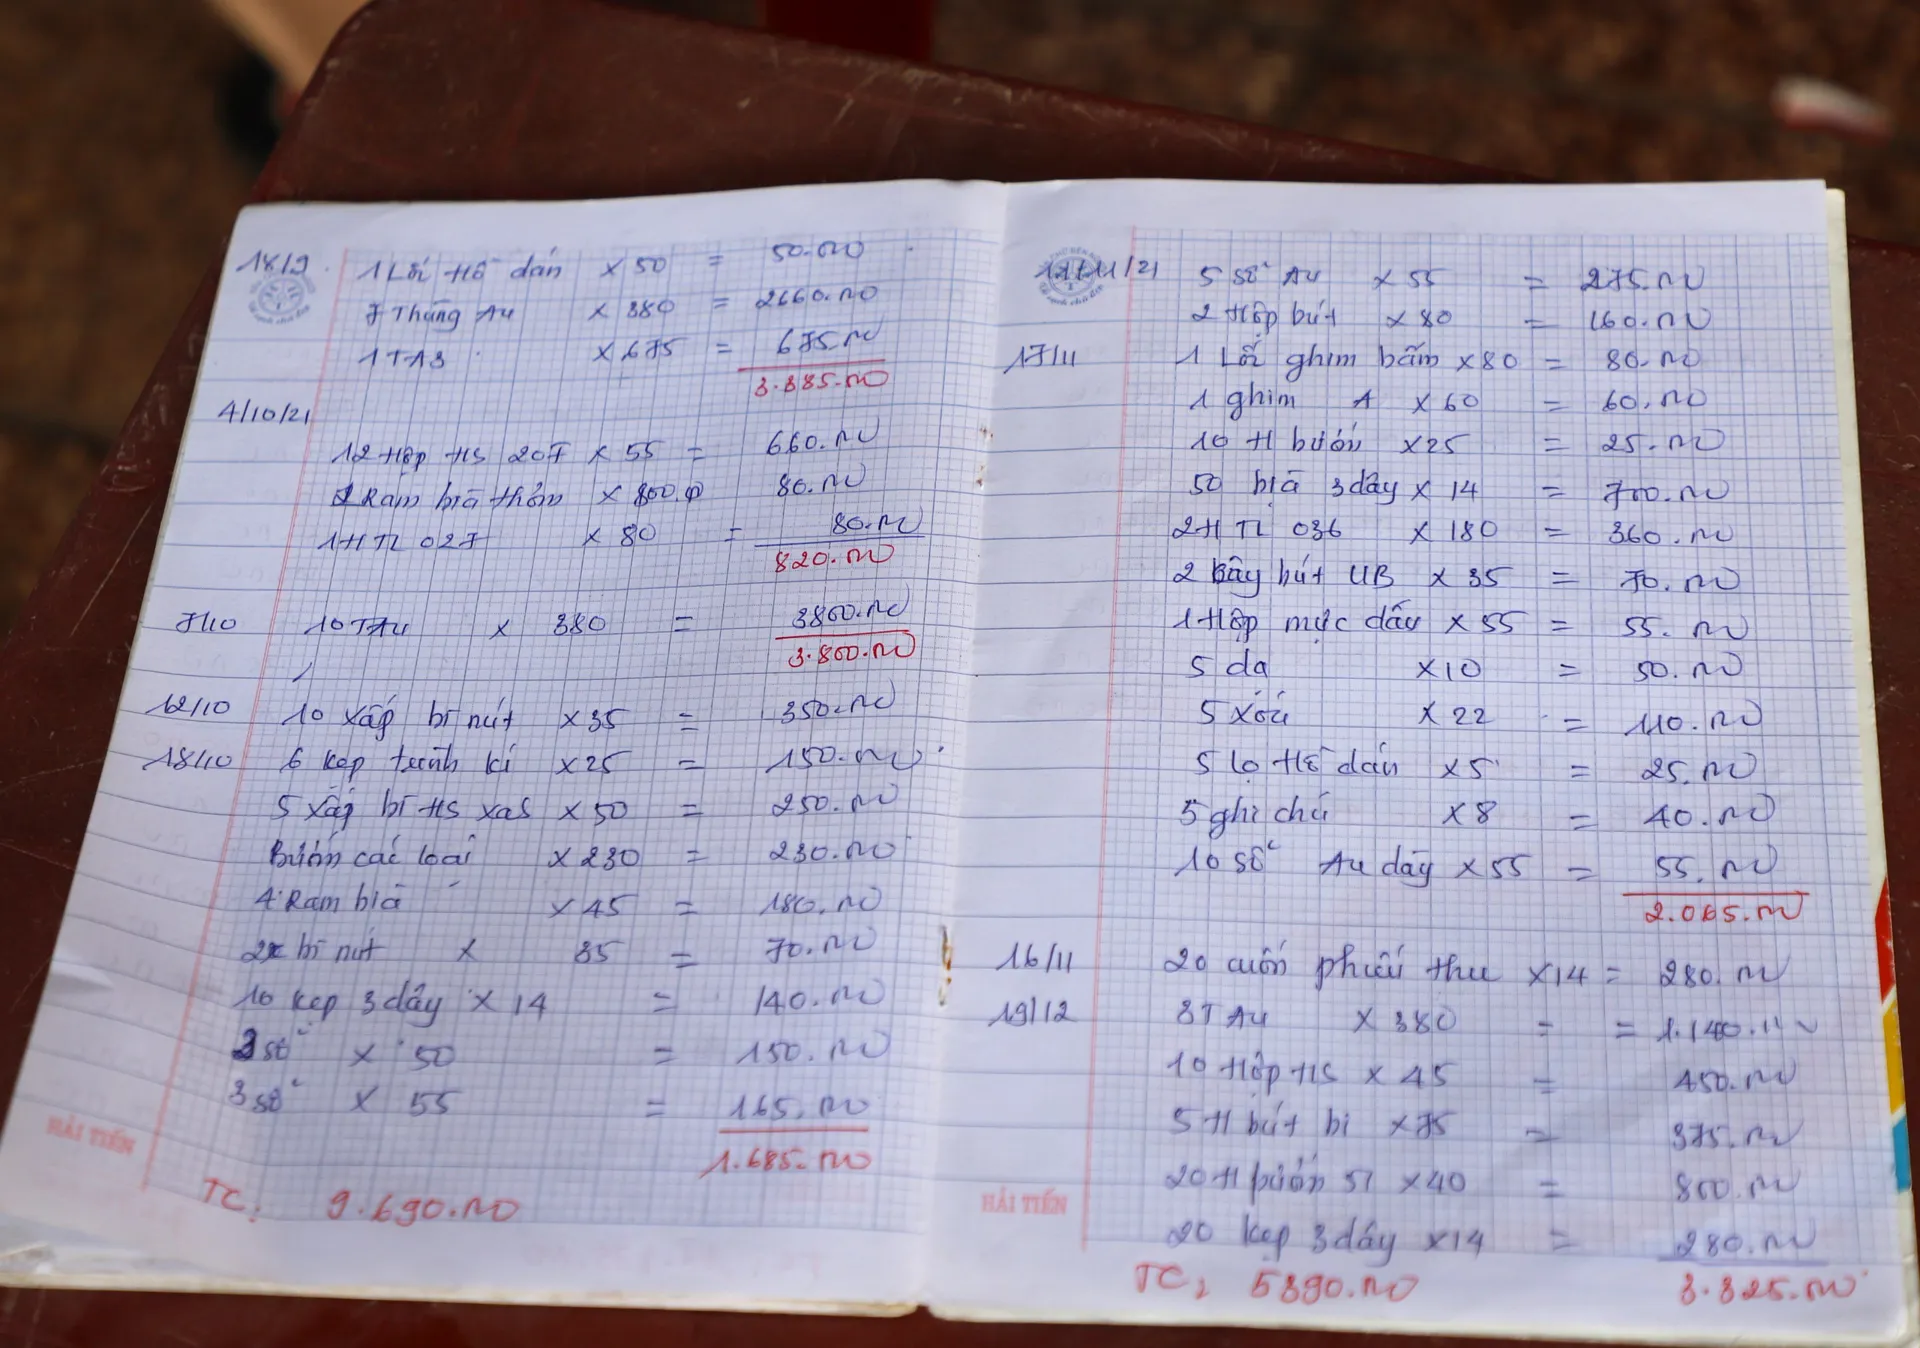 18/9 1 Lốc Hồ dán x 50 = 50.000
7 Thùng A4 x 380 = 2660.000
1 TA3 x 675 = 675.000
3.385.000
4/10/21
12 Hộp HS 207 x 55 = 660.000
2 Ram bìa thơm x 80.000.000
1 H TL 027 x 80 = 80.000
820.000
7/10 10 TA4 x 380 = 3800.000
3.800.000
12/10 10 xấp bì nút x 35 = 350.000
18/10 6 kẹp trình kí x 25 = 150.000
5 xấp bì HS x 50 = 250.000
Bướm các loại x 230 = 230.000
4 Ram bìa x 45 = 180.000
2x bì nút x 35 = 70.000
10 kẹp 3 dây x 14 = 140.000
3 sổ x 50 = 150.000
3 sổ x 55 = 165.000
1.685.000
HẢI TIẾN
TC: 9.690.000
11/21 5 sổ A4 x 55 = 275.000
2 Hộp bút x 80 = 160.000
17/11 1 Lốc ghim bấm x 80 = 80.000
1 ghim A x 60 = 60.000
10 H bướm x 25 = 25.000
50 bìa 3 dây x 14 = 700.000
2 H TL 036 x 180 = 360.000
2 cây bút UB x 35 = 70.000
1 Hộp mực dấu x 55 = 55.000
5 dạ x 10 = 50.000
5 xóa x 22 = 110.000
5 lọ Hồ dán x 5 = 25.000
5 ghi chú x 8 = 40.000
10 sổ A4 dày x 55 = 55.000
2.065.000
16/11 20 cuốn phiếu thu x 14 = 280.000
19/12 3T A4 x 380 = = 1.140.000
10 Hộp HS x 45 = 450.000
5 H bút bi x 75 = 375.000
20 H bướm 51 x 40 = 800.000
20 kẹp 3 dây x 14 = 280.000
HẢI TIẾN
3.325.000
TC: 5390.000